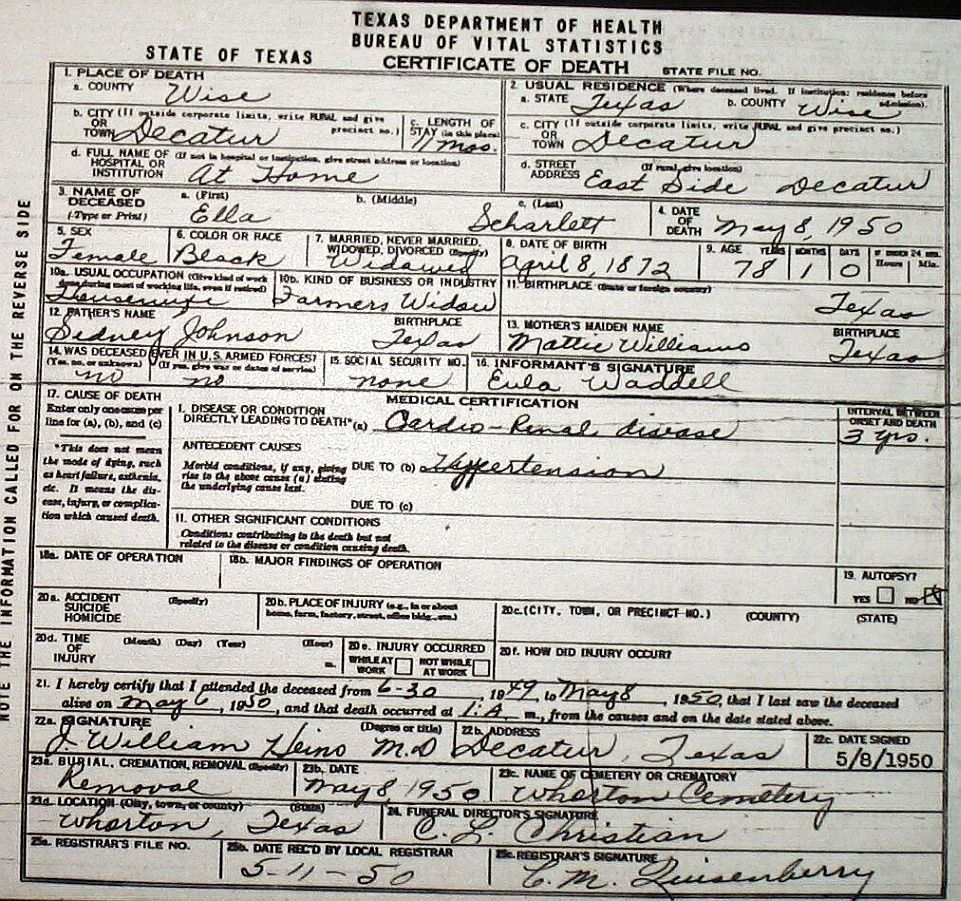 TEXAS DEPARTMENT OF HEALTH
BUREAU OF VITAL STATISTICS
STATE OF TEXAS CERTIFICATE OF DEATH STATE FILE NO.
1. PLACE OF DEATH
a. COUNTY Wise
2. USUAL RESIDENCE (Where deceased lived. If institution: residence before admission).
a. STATE Texas b. COUNTY Wise
b. CITY (If outside corporate limits, write RURAL and give precinct no.) OR TOWN Decatur
c. LENGTH OF STAY (in this place) 11 mos.
c. CITY (If outside corporate limits, write RURAL and give precinct no.) OR TOWN Decatur
d. FULL NAME OF HOSPITAL OR INSTITUTION (If not in hospital or institution, give street address or location) At Home
d. STREET ADDRESS (If rural, give location) East Side Decatur
3. NAME OF DECEASED (Type or Print) a. (First) Ella b. (Middle) c. (Last) Scharlett
4. DATE OF DEATH May 8, 1950
5. SEX Female
6. COLOR OR RACE Black
7. MARRIED, NEVER MARRIED, WIDOWED, DIVORCED (Specify) Widowed
8. DATE OF BIRTH April 8, 1872
9. AGE YEARS 78 MONTHS 1 DAYS 0 IF UNDER 24 HRS. Hours Min.
10a. USUAL OCCUPATION (Give kind of work done during most of working life, even if retired) Housewife
10b. KIND OF BUSINESS OR INDUSTRY Farmers Widow
11. BIRTHPLACE (State or foreign country) Texas
12. FATHER'S NAME Sidney Johnson BIRTHPLACE Texas
13. MOTHER'S MAIDEN NAME Mattie Williams BIRTHPLACE Texas
14. WAS DECEASED EVER IN U.S. ARMED FORCES? (Yes, no, or unknown) no (If yes, give war or dates of service) no
15. SOCIAL SECURITY NO. none
16. INFORMANT'S SIGNATURE Eula Waddell
17. CAUSE OF DEATH
Enter only one cause per line for (a), (b), and (c)
*This does not mean the mode of dying, such as heart failure, asthenia, etc. It means the disease, injury, or complication which caused death.
MEDICAL CERTIFICATION
INTERVAL BETWEEN ONSET AND DEATH
I. DISEASE OR CONDITION DIRECTLY LEADING TO DEATH* (a) Cardio-Renal disease 3 yrs.
ANTECEDENT CAUSES
Morbid conditions, if any, giving rise to the above cause (a) stating the underlying cause last.
DUE TO (b) Hypertension
DUE TO (c)
11. OTHER SIGNIFICANT CONDITIONS
Conditions contributing to the death but not related to the disease or condition causing death.
18a. DATE OF OPERATION
18b. MAJOR FINDINGS OF OPERATION
19. AUTOPSY?
YES NO X
20a. ACCIDENT SUICIDE HOMICIDE (Specify)
20b. PLACE OF INJURY (e.g., in or about home, farm, factory, street, office bldg., etc.)
20c. (CITY, TOWN, OR PRECINCT NO.) (COUNTY) (STATE)
20d. TIME OF INJURY (Month) (Day) (Year) (Hour) m.
20e. INJURY OCCURRED
WHILE AT WORK NOT WHILE AT WORK
20f. HOW DID INJURY OCCUR?
21. I hereby certify that I attended the deceased from 6-30, 1949, to May 8, 1950, that I last saw the deceased
alive on May 6, 1950, and that death occurred at 1:A m., from the causes and on the date stated above.
22a. SIGNATURE (Degree or title) J. William Heino M.D
22b. ADDRESS Decatur, Texas
22c. DATE SIGNED 5/8/1950
23a. BURIAL, CREMATION, REMOVAL (Specify) Removal
23b. DATE May 8 1950
23c. NAME OF CEMETERY OR CREMATORY Wharton Cemetery
23d. LOCATION (City, town, or county) (State) Wharton, Texas
24. FUNERAL DIRECTOR'S SIGNATURE C. L. Christian
25a. REGISTRAR'S FILE NO.
25b. DATE REC'D BY LOCAL REGISTRAR 5-11-50
25c. REGISTRAR'S SIGNATURE C. M. Quisenberry
NOTE THE INFORMATION CALLED FOR ON THE REVERSE SIDE